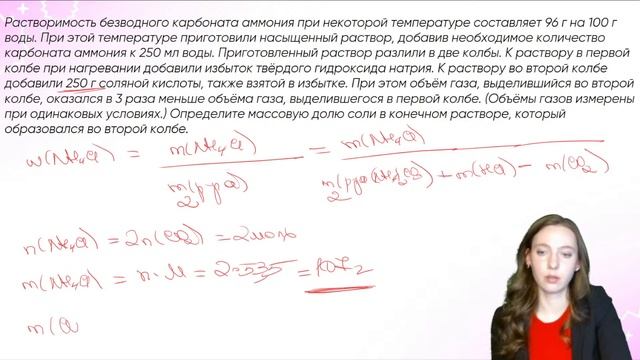 Растворимость безводного карбоната аммония при некоторой температуре составляет 96 г на 100 г
воды. При этой температуре приготовили насыщенный раствор, добавив необходимое количество
карбоната аммония к 250 мл воды. Приготовленный раствор разлили в две колбы. К раствору в первой
колбе при нагревании добавили избыток твёрдого гидроксида натрия. К раствору во второй колбе
добавили 250 г соляной кислоты, также взятой в избытке. При этом объём газа, выделившийся во второй
колбе, оказался в 3 раза меньше объёма газа, выделившегося в первой колбе. (Объёмы газов измерены
при одинаковых условиях.) Определите массовую долю соли в конечном растворе, который
образовался во второй колбе.
w(NH₄Cl) = m(NH₄Cl) / m₂(р-ра) = m(NH₄Cl) / m₂(р-ра ) + m(HCl) − m(CO₂)
n(NH₄Cl) = 2n(CO₂) = 2моль
m(NH₄Cl) = n·M = 2·53,5 = 107 г
m(